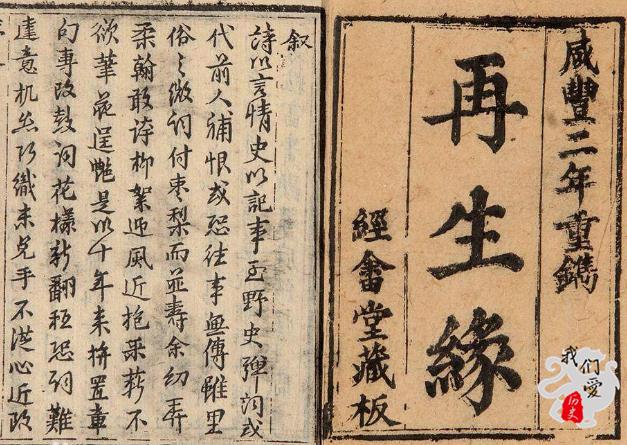 咸豐二年重鐫
再生緣
經畬堂藏板
叙
詩以言情史以記事至野史彈詞或
代前人補恨或恐往事無傳雖里
俗之微詞付枣梨而並壽余幼弄
柔翰敢誇柳絮迎風近抱采薪不
欲筆花逞艷是以十年来拚置章
句專改鼓詞花樣新翻秪恐詞難
達意机絲巧織未免手不從心近改
我們愛
历史